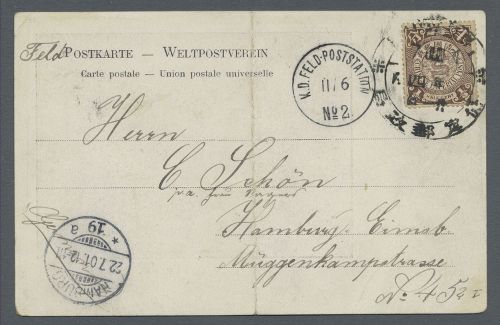 Feld POSTKARTE — WELTPOSTVEREIN
Carte postale — Union postale universelle
K.D. FELD-POSTSTATION
11/6
No 2.
Herrn
C. Schön
p.a. Frau
Hamburg Eimsb.
Müggenkampstrasse
No. 45a I
* 19 a
22.7.01
HAMBURG